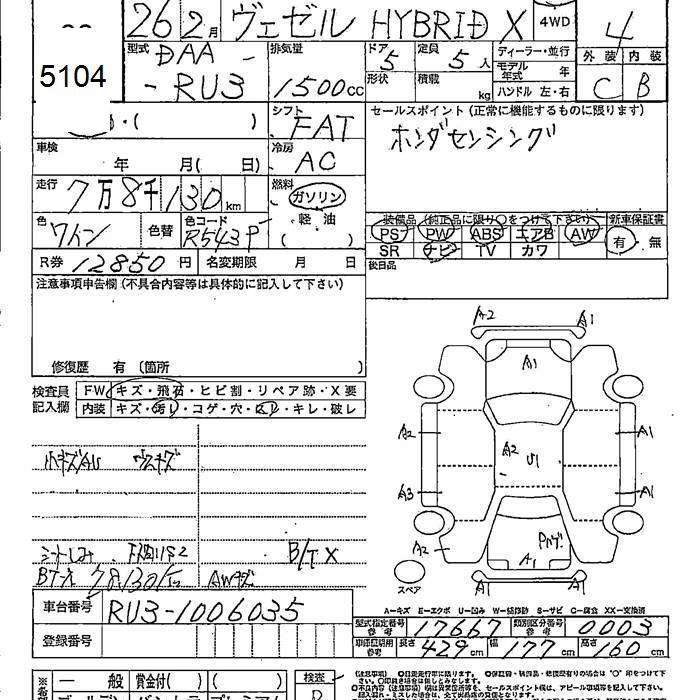 26 2月 ヴェゼル HYBRID X 4WD 4
5104
型式 DAA - RU3
排気量 1500cc
ドア 5 定員 5人
形状 積載 kg
ディーラー・並行
モデル年式 年
ハンドル 左・右
外装 内装
C B
・( )
シフト FAT
セールスポイント (正常に機能するものに限ります)
ホンダセンシング
車検 年 月( 日)
冷房 AC
走行 7万8千130km
燃料 ガソリン
軽油
( )
色 ワイン 色替 色コード R543P
装備品 (純正品に限り○をつけて下さい) 新車保証書
PS PW ABS エアB AW 有・無
SR ナビ TV カワ
R券 12850円 名変期限 月 日
後日品
注意事項申告欄 (不具合内容等は具体的に記入して下さい)
修復歴 有 (箇所 )
検査員記入欄
FW キズ・飛石・ヒビ割・リペア跡・X要
内装 キズ・汚れ・コゲ・穴・スレ・キレ・破レ
小キズAU ウスキズ
シートしみ
B/T X
78130km AWキズ
A2 A1
A1
A2 A2 U1 A1
A3 A1
A2 A1
A1 A1
スペア
A―キズ E―エクボ U―凹み W―補修跡 S―サビ C―腐食 XX―交換済
車台番号 RU3-1006035
登録番号
型式指定番号 参考 17667 類別区分番号 参考 0003
車庫証明用 参考 長さ 429cm 幅 177cm 高さ 160cm
一般 賞金付( ) ( ) 検査